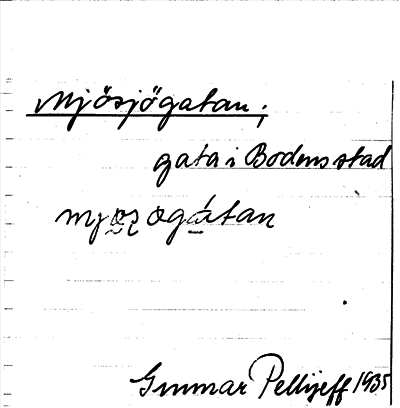 Mjösjögatan;
gata i Bodens stad
mjo̰ʂ ogá̱tan
Gunnar Pellijeff 1935